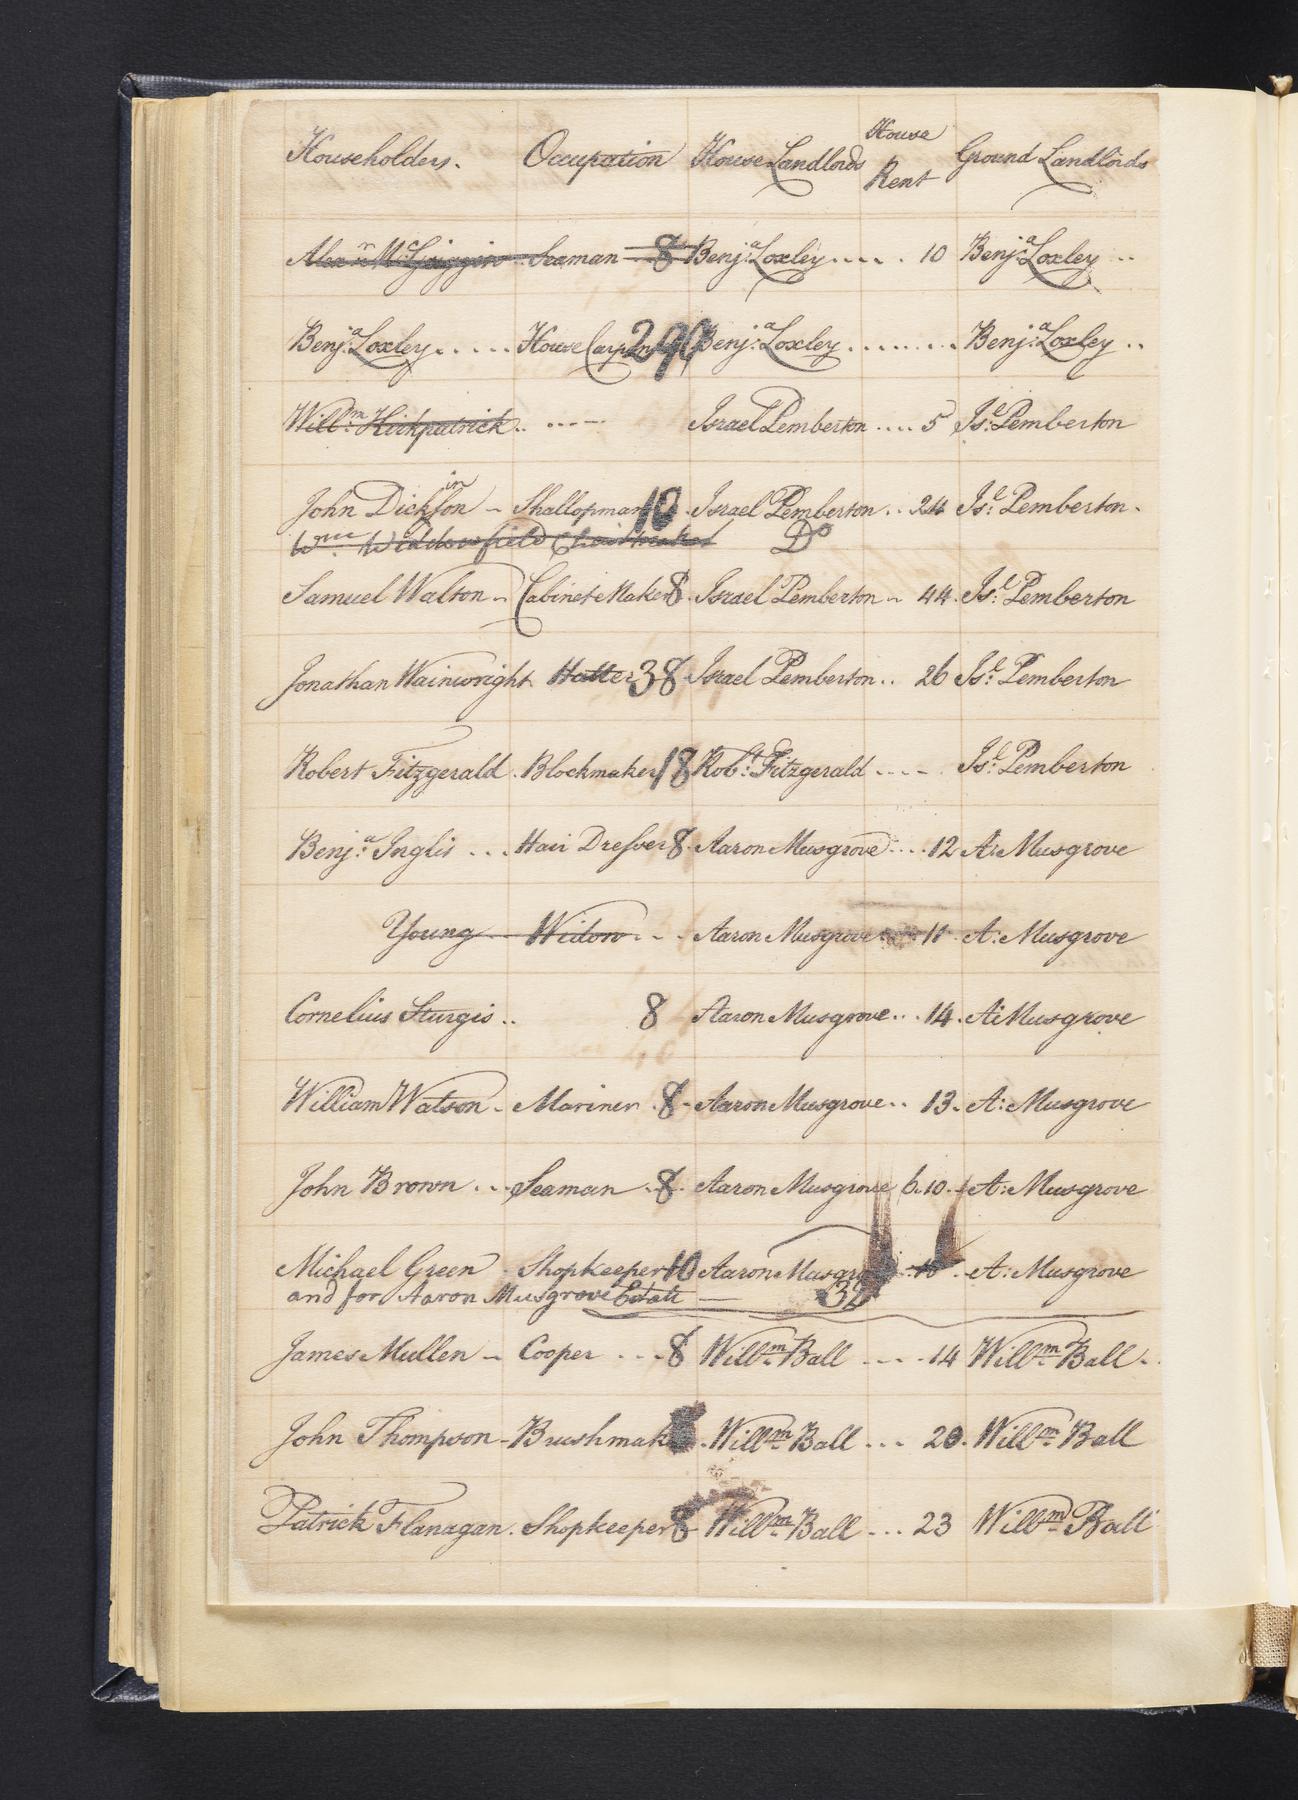 Householders. Occupation House Landlords House Rent Ground Landlords
Alexr. Seaman 8 Benja. Loxley .... 10 Benja. Loxley ..
Benja. Loxley ..... House 299 Benja. Loxley ....... Benja. Loxley ..
Willm. Kirkpatrick .. .... Israel Pemberton .... 5 Isl. Pemberton
John Dickinson - Shallopman 10 Israel Pemberton .. 24 Isl. Pemberton.
Wm. Widdowfield Do
Samuel Walton - Cabinet Maker 8. Israel Pemberton - 44. Isl. Pemberton
Jonathan Wainwright. Hatter 38 Israel Pemberton .. 26 Isl. Pemberton
Robert Fitzgerald. Blockmaker 18 Robt. Fitzgerald .... Isl. Pemberton
Benja. Inglis ... Hair Dresser 8. Aaron Musgrove ... 12 A: Musgrove
Young Widow . . . Aaron Musgrove 11 A: Musgrove
Cornelius Sturgis .. 8 Aaron Musgrove .. 14. A: Musgrove
William Watson - Mariner . 8 - Aaron Musgrove .. 13. A: Musgrove
John Brown ... Seaman .. 8. Aaron Musgrove 6.10. A: Musgrove
Michael Green Shopkeeper 10 Aaron A: Musgrove
and for Aaron Musgrove Estate — 32
James Mullen - Cooper ... 8 Willm. Ball .... 14 Willm. Ball.
John Thompson - . Willm. Ball ... 20. Willm. Ball
Patrick Flanagan. Shopkeeper 8 Willm. Ball ... 23 Willm. Ball